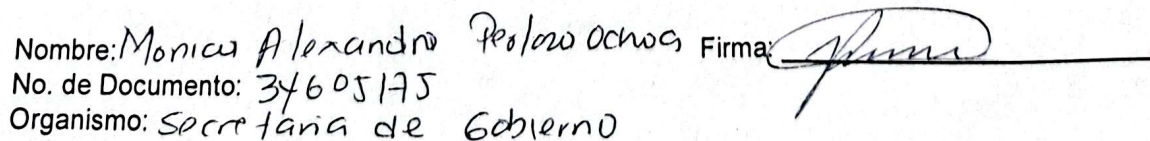 Nombre: Monica Alexandra Peoloza Ochoa Firma:
No. de Documento: 34605175
Organismo: Secretaria de Gobierno